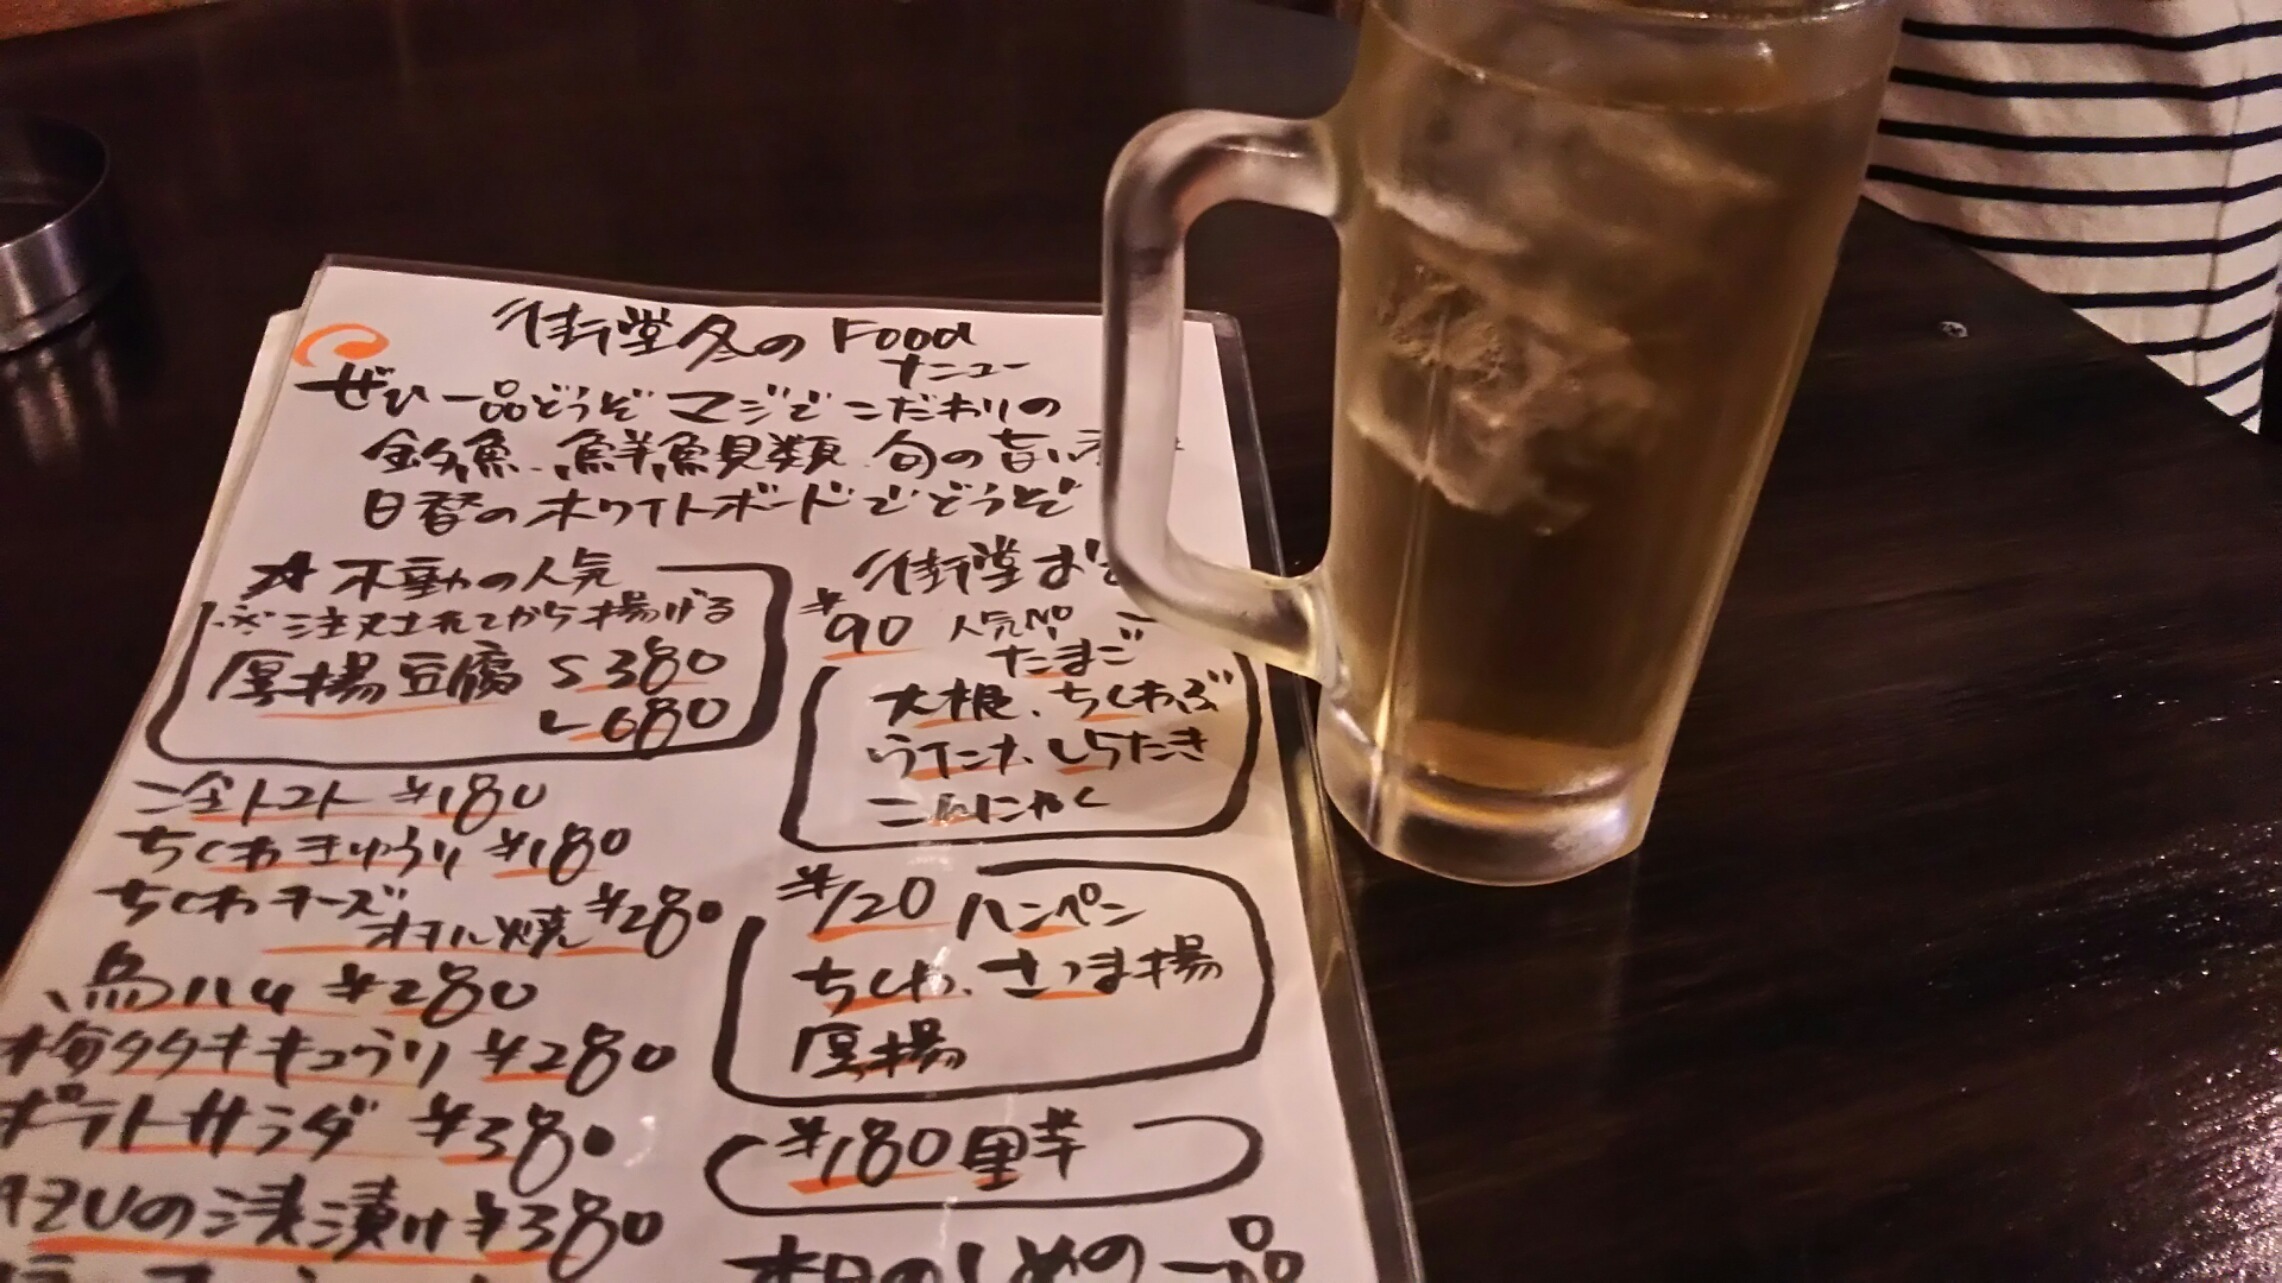 街堂冬のFood
メニュー
ぜひ一品どうぞマジでこだわりの
釣魚、鮮魚貝類、旬の旨い
日替のホワイトボードでどうぞ
☆不動の人気
※ご注文されてから揚げる
厚揚豆腐 S380
L680
冷トマト ¥180
ちくわきゅうり ¥180
ちくわチーズ
オイル焼 ¥280
鳥ハム ¥280
梅タタキキュウリ ¥280
ポテトサラダ ¥380
の浅漬け ¥380
街堂お
¥90 人気No
たまご
大根、ちくわぶ
ウインナ、しらたき
こんにゃく
¥120 ハンペン
ちくわ、さつま揚
厚揚
¥180 里芋
本日のしめの一品